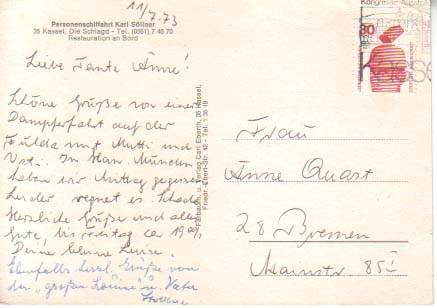 11/7.73
Personenschiffahrt Karl Söllner
35 Kassel, Die Schlagd - Tel. (0561) 7 40 70
Restauration an Bord
Liebe Tante Änne!
Schöne Grüße von einer
Dampferfahrt auf der
Fulda mit Mutti und
Vati. In Han. Münden
haben wir Mittag gegessen
Leider regnet es. Schade
Herzliche Grüße und alles
Gute, bis Freitag ca 19
Deine kleine
Ebenfalls herzl. Grüße von
der "großen und Vater
Farbaufn. u. Verlag Carl Eberth, 35 Kassel,
Friedr.-Ebert-Str. 42 - Tel. 1 30 18
30
Frau
Änne Quast
28 Bremen
Mainstr 85 I